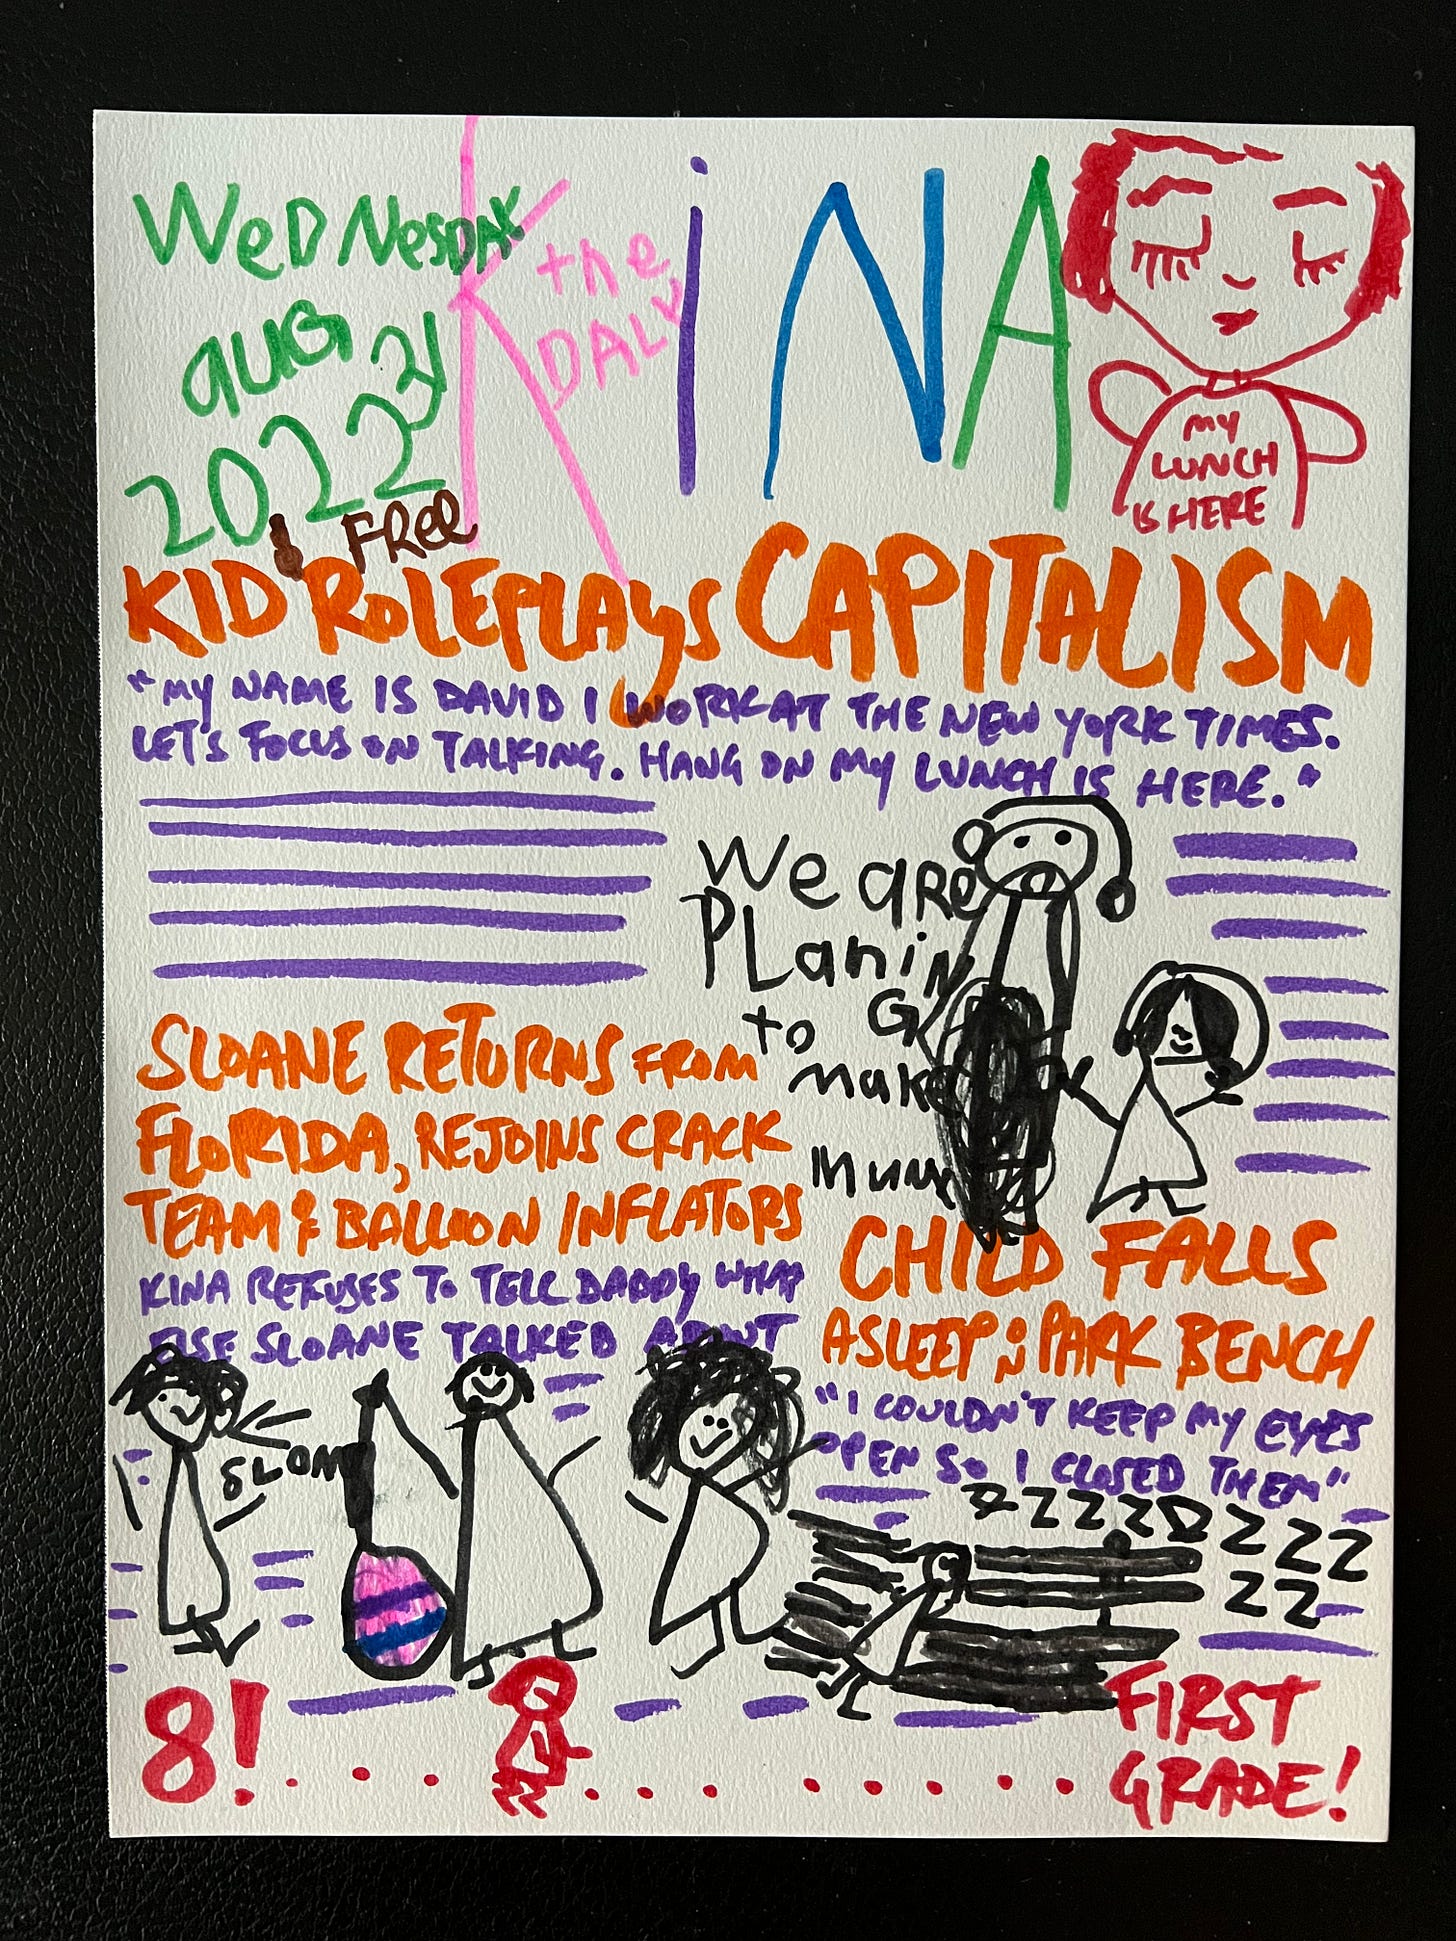 WeDNesDAY
AUG 31
2022
FRee
the
DALY
KiNA
MY
LUNCH
IS HERE
KID ROLEPLAYS CAPITALISM
"MY NAME IS DAVID I WORK AT THE NEW YORK TIMES.
LET'S FOCUS ON TALKING. HANG ON MY LUNCH IS HERE."
We aRe
PLaniN
G
to
make
SLOANE RETURNS FROM
FLORIDA, REJOINS CRACK
TEAM OF BALLOON INFLATORS
KINA REFUSES TO TELL DADDY WHAT
ELSE SLOANE TALKED ABOUT
SLOM
CHILD FALLS
ASLEEP ON PARK BENCH
"I COULDN'T KEEP MY EYES
OPEN SO I CLOSED THEM"
ZZZZZZZZZ
ZZ
8!
FIRST
GRADE!